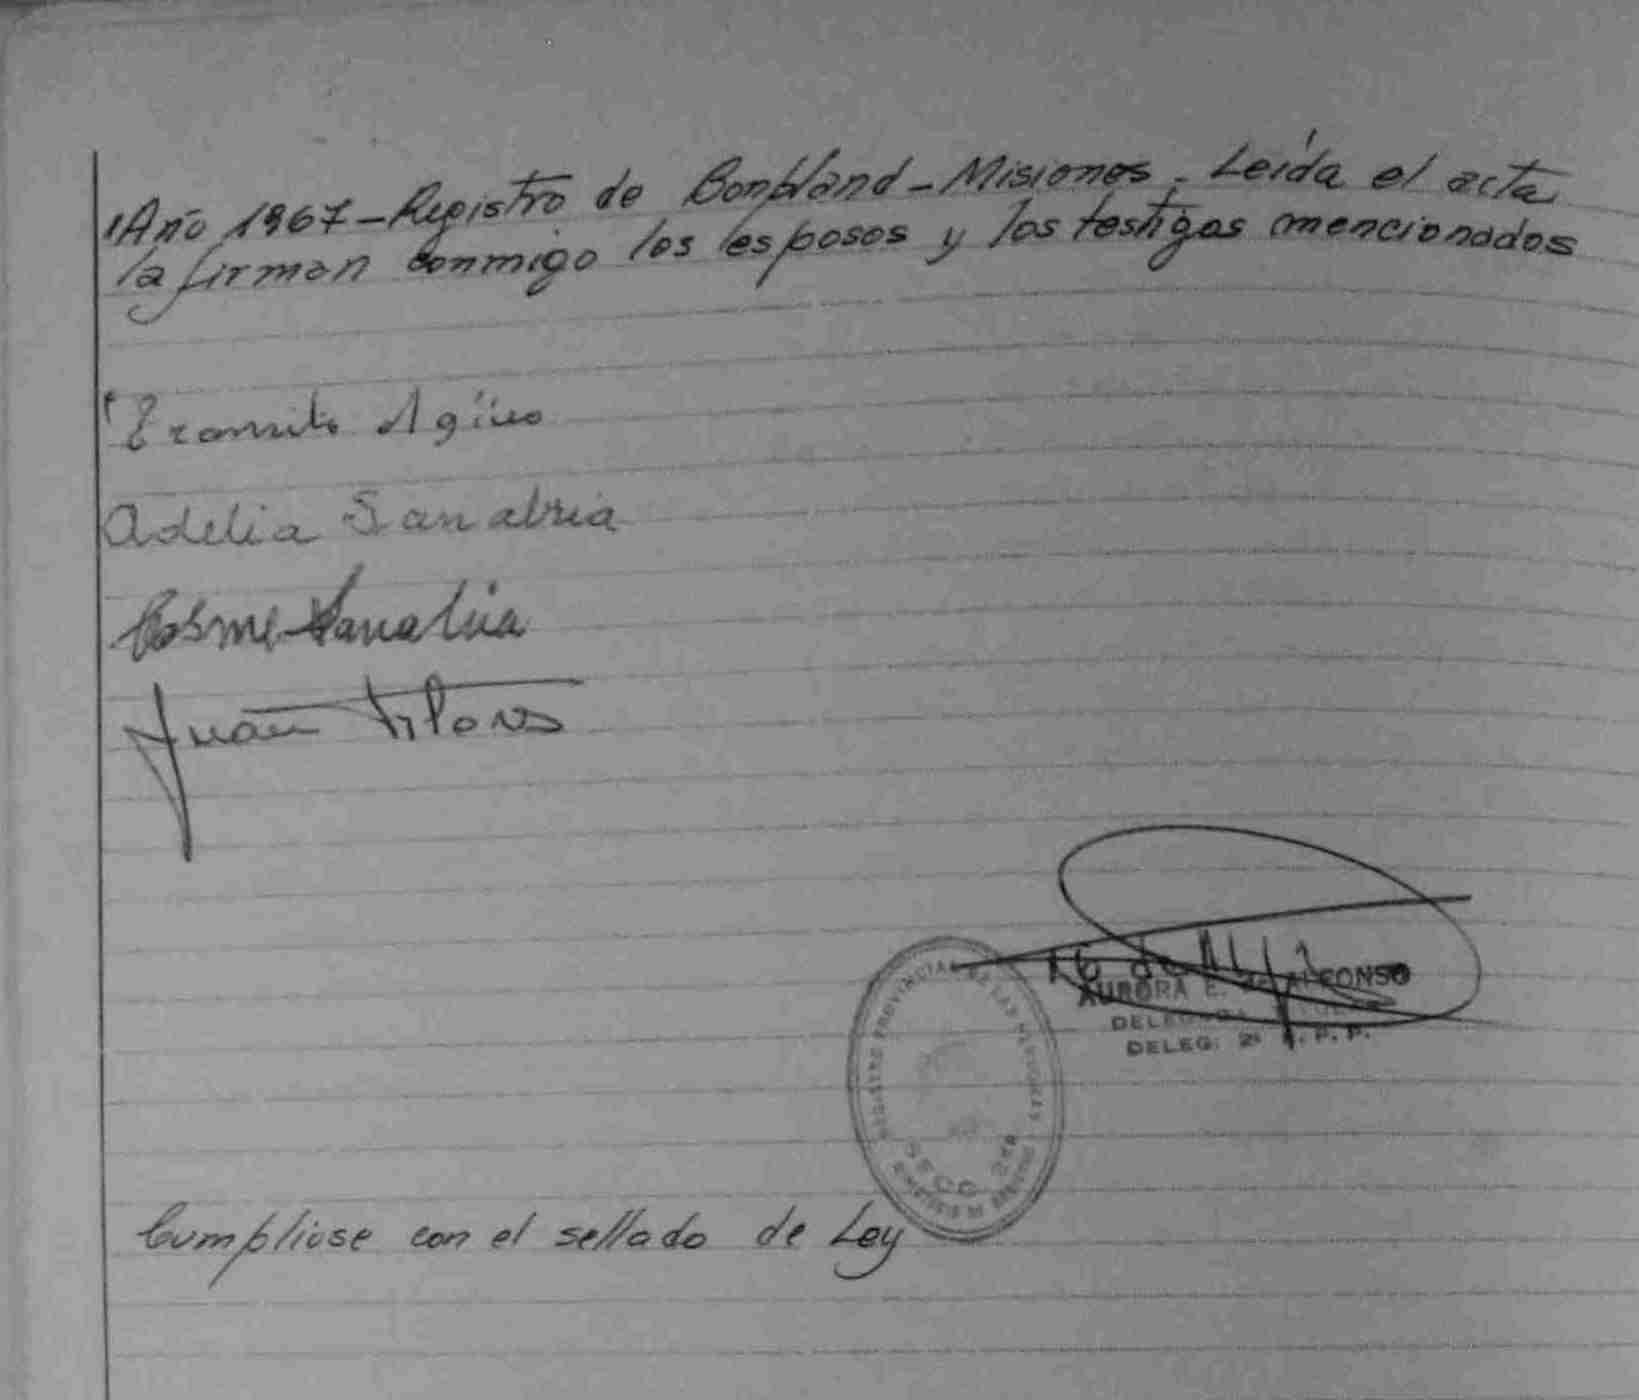 Año 1967 - Registro de Bonpland - Misiones. Leída el acta
la firman conmigo los esposos y los testigos mencionados
Transito Agüero
Adelia Sanabria
Cosme Sanabria
Juan
AURORA E. DE ALFONSO
DELEG: 2ª R. P. P.
REGISTRO PROVINCIAL DE LAS PERSONAS
SECC 2da
Cumplióse con el sellado de Ley